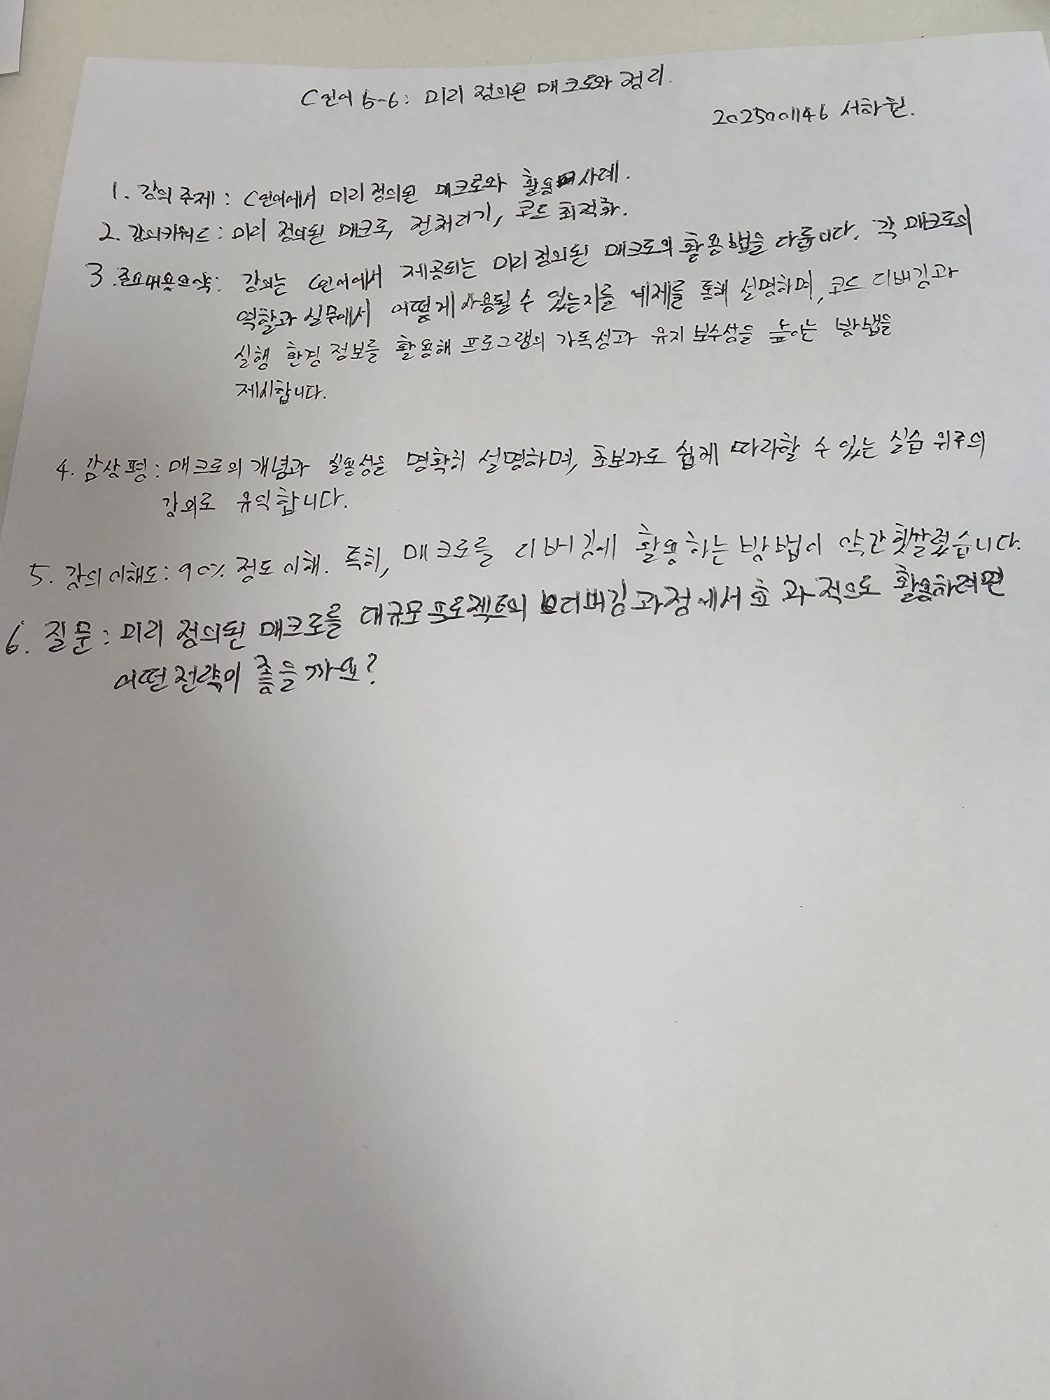 C언어 5-6: 미리 정의된 매크로와 정리.
2025001146 서하원.
1. 강의 주제: C언어에서 미리 정의된 매크로와 활용 사례.
2. 강의키워드: 미리 정의된 매크로, 전처리기, 코드 최적화.
3. 주요내용요약: 강의는 C언어에서 제공되는 미리 정의된 매크로의 활용법을 다룹니다. 각 매크로의
역할과 실무에서 어떻게 사용될 수 있는지를 예제를 통해 설명하며, 코드 디버깅과
실행 환경 정보를 활용해 프로그램의 가독성과 유지 보수성을 높이는 방법을
제시합니다.
4. 감상평: 매크로의 개념과 실용성을 명확히 설명하며, 초보자도 쉽게 따라할 수 있는 실습 위주의
강의로 유익합니다.
5. 강의 이해도: 90% 정도 이해. 특히, 매크로를 디버깅에 활용하는 방법이 약간 헷갈렸습니다.
6. 질문: 미리 정의된 매크로를 대규모 프로젝트의 디버깅 과정에서 효과적으로 활용하려면
어떤 전략이 좋을까요?